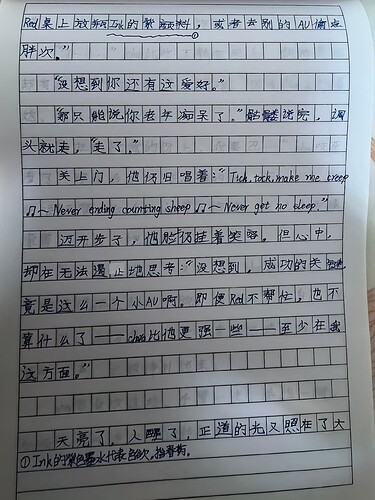 Red桌上放瓶Ink的紫颜料，或者去别的AU偷点
胖次。”
“没想到你还有这爱好。”
“那只能说你老年痴呆了。”骷髅说完，调
头就走，“走了。”
关上门，他仍旧唱着：“Tick, tock, make me creep
♫～Never ending counting sheep ♫～Never get no sleep.”
迈开步了，他脸仍挂着笑容，但心中，
却在无法遏止地思考：“没想到，成功的关键
竟是这么一个小AU啊。即便Red不帮忙，也不
算什么了——chara比他更强一些——至少在
这方面。”
天亮了，人醒了，正道的光又照在了大
①Ink的紫色墨水代表色欲。